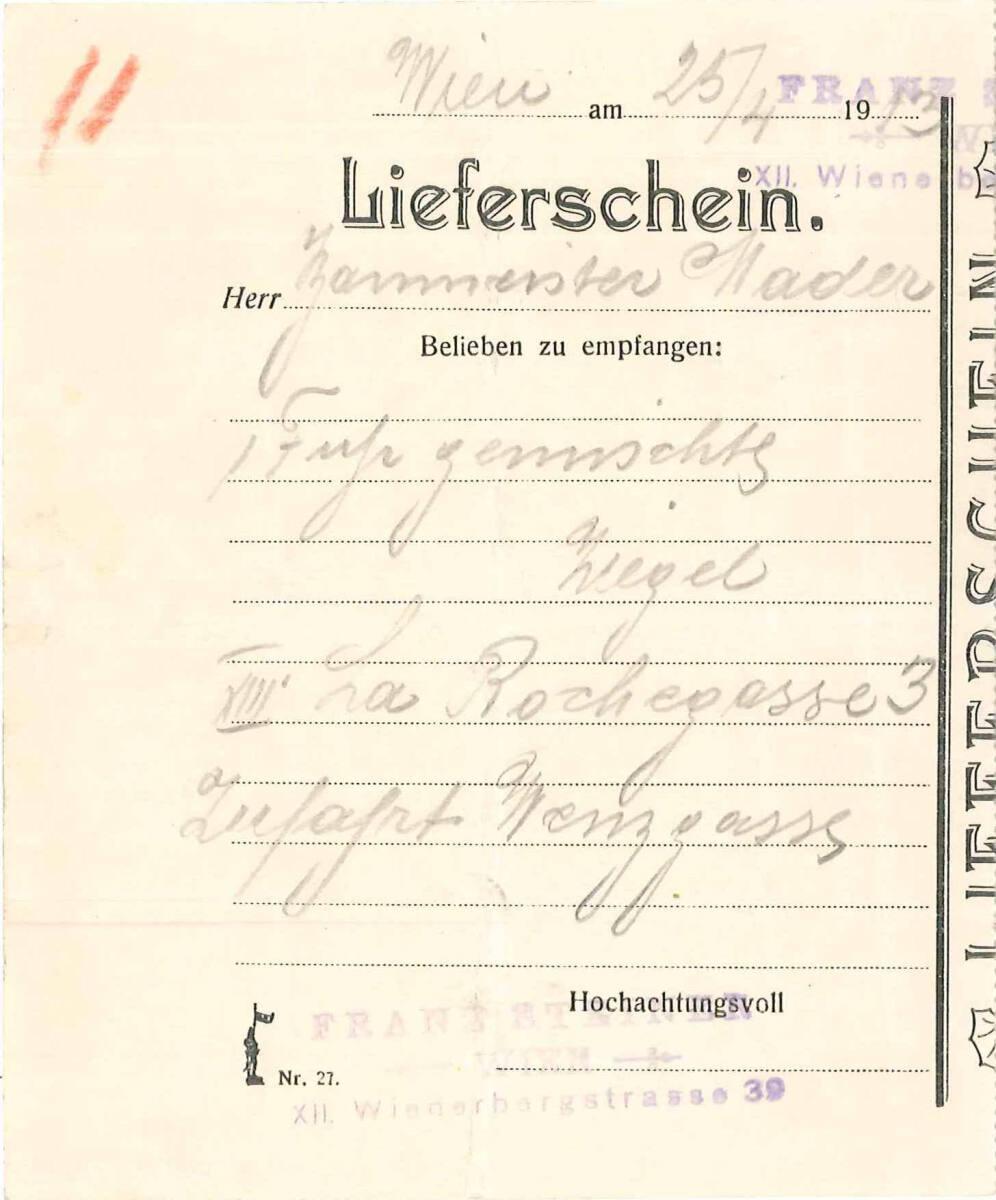 11
Wien am 25/4 1913
FRANZ S
WI
XII. Wienerbe
Lieferschein.
Herr Baumeister Mader
Belieben zu empfangen:
1 Fuhr gemischte
Ziegel
XIII. La Rochegasse 3
Zufahrt Wenzgasse
Hochachtungsvoll
FRANZ STEINER
WIEN
Nr. 27.
XII. Wienerbergstrasse 39
LIEFERSCHEIN